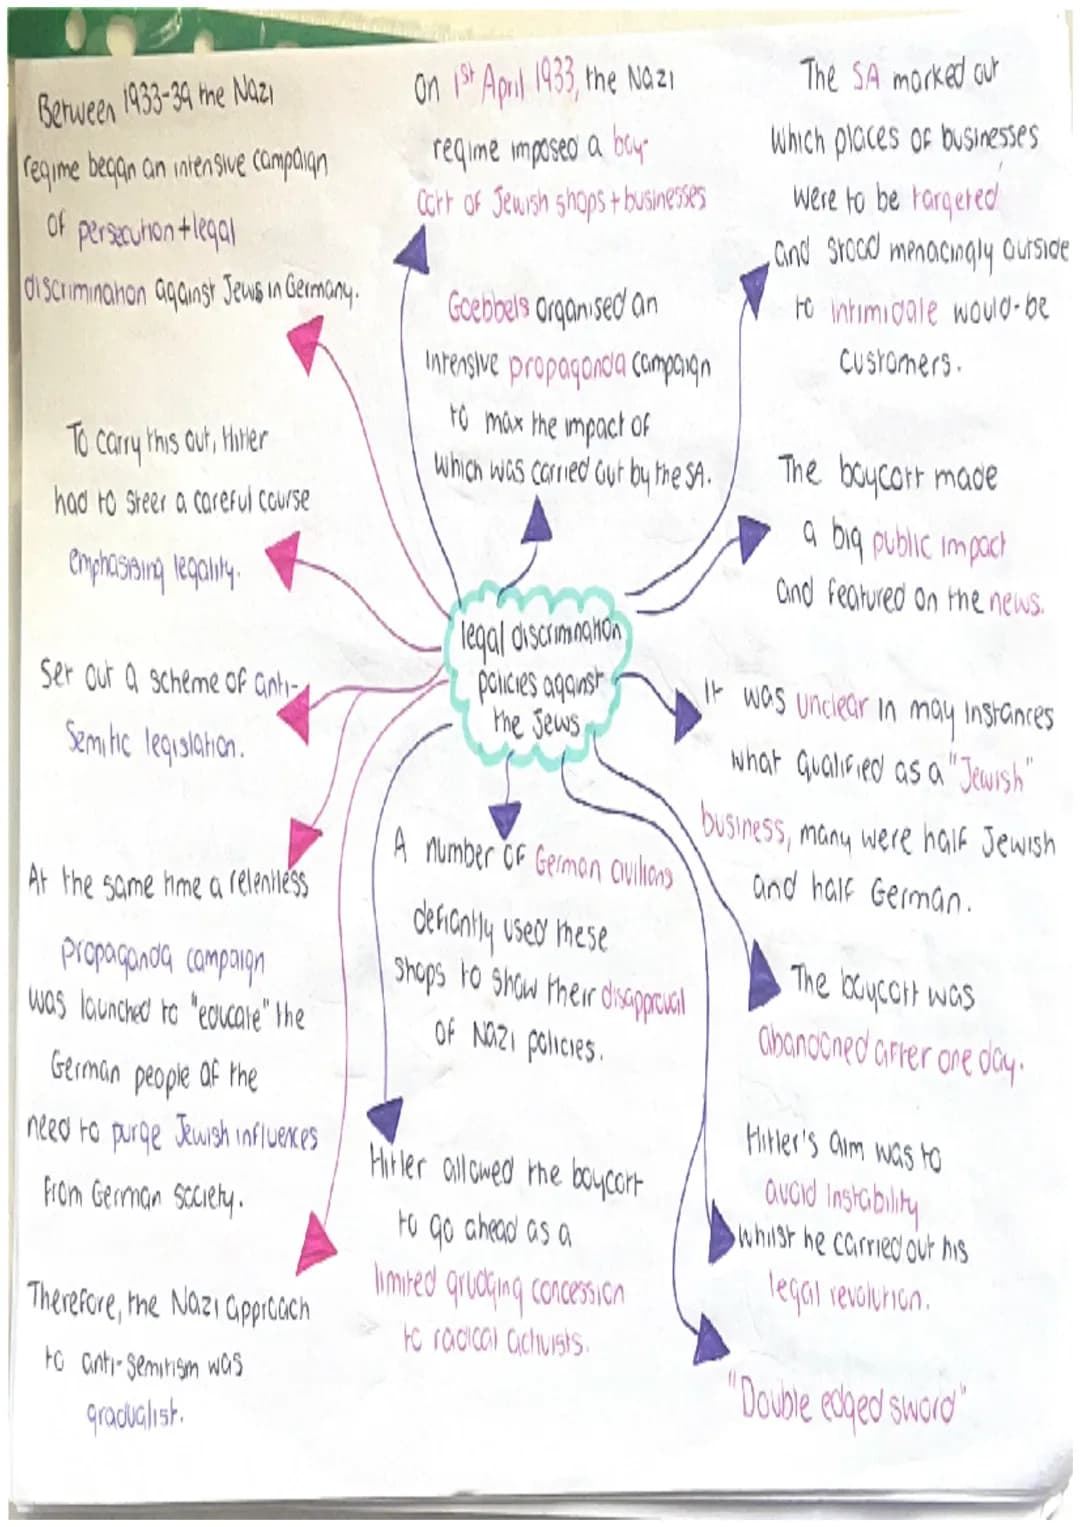 Between 1933-39 the Nazi
regime began an intensive campaign
of persecution + legal
discrimination against Jews in Germany.
To carry this out, Hitler
had to steer a careful course
emphasising legality.
Set out a scheme of anti-
Semitic legislation.
At the same time a relentless
propaganda campaign
was launched to "educate" the
German people of the
need to purge Jewish influences
from German society.
Therefore, the Nazi approach
to anti-semitism was
gradualist.
On 1st April 1933, the Nazi
regime imposed a boy-
cott of Jewish shops + businesses
Goebbels organised an
intensive propaganda campaign
to max the impact of
which was carried out by the SA.
legal discrimination
policies against
the Jews
A number of German civilians
defiantly used these
shops to show their disapproval
of Nazi policies.
Hitler allowed the boycott
to go ahead as a
limited grudging concession
to radical activists.
The SA marked out
which places of businesses
were to be targeted
and stood menacingly outside
to intimidate would-be
customers.
The boycott made
a big public impact
and featured on the news.
It was unclear in may instances
what qualified as a "Jewish"
business, many were half Jewish
and half German.
The boycott was
abandoned after one day.
Hitler's aim was to
avoid instability
whilst he carried out his
legal revolution.
"Double edged sword"